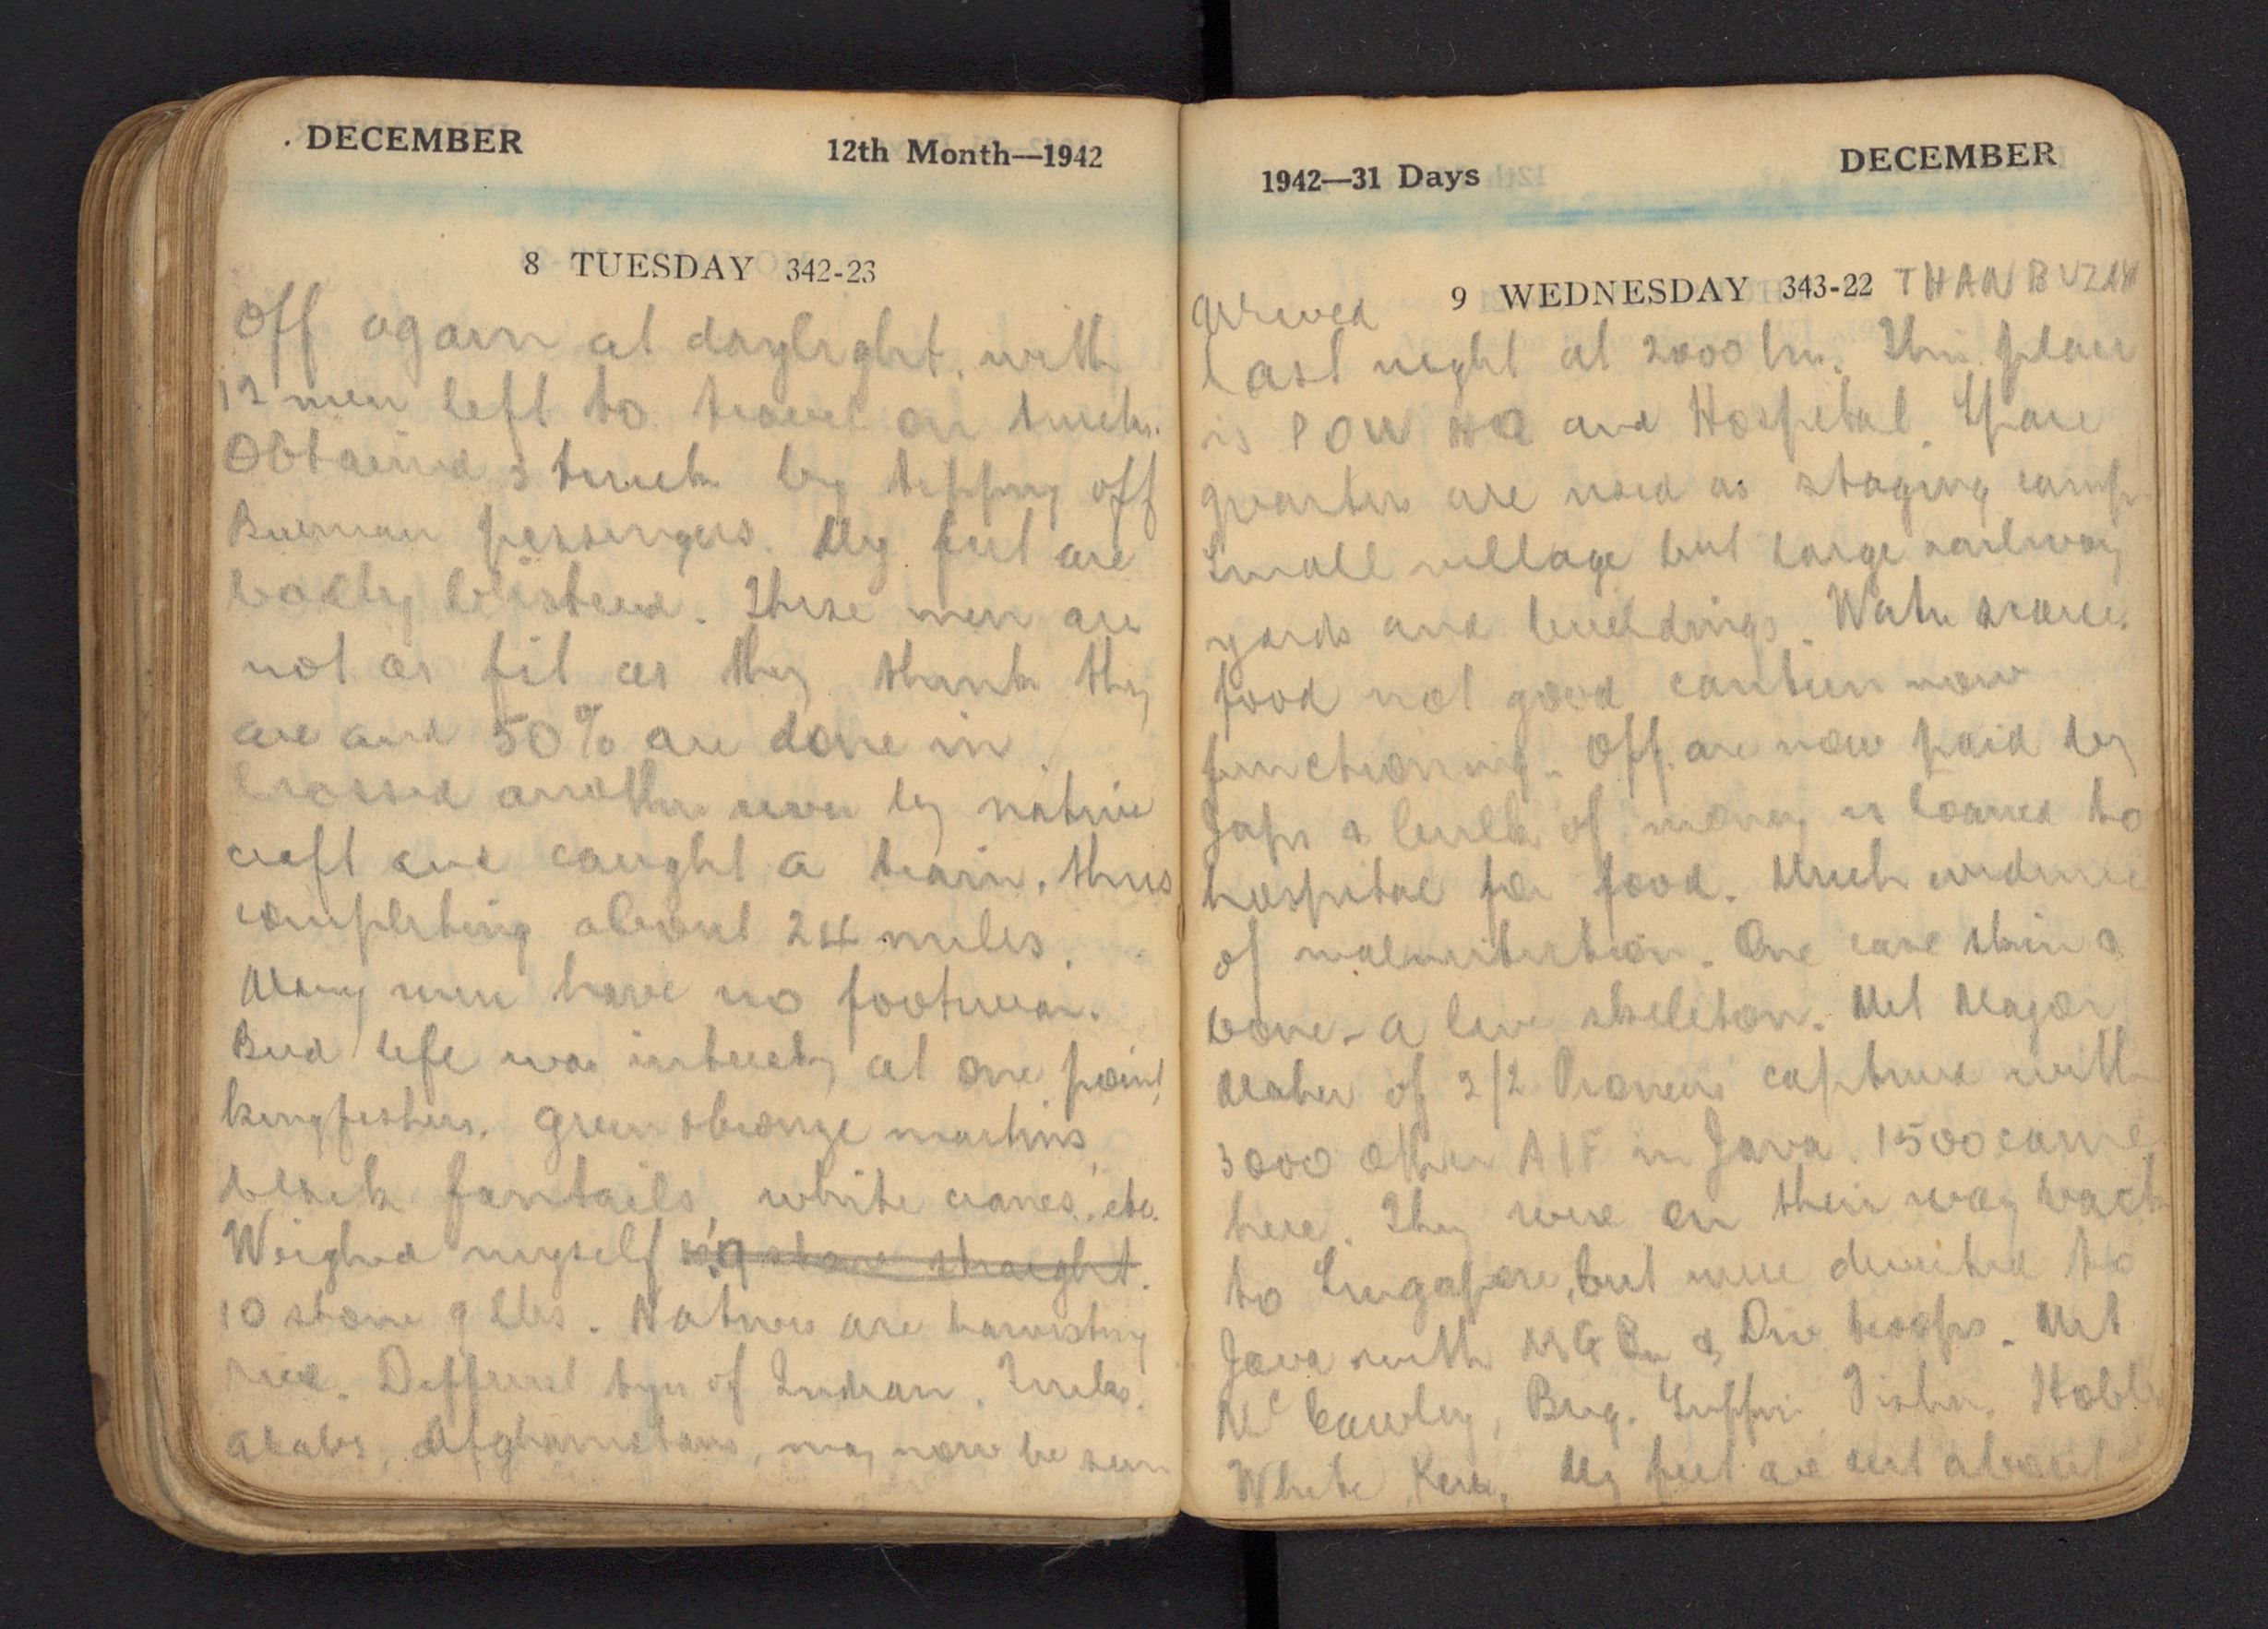 DECEMBER 12th Month—1942
8 TUESDAY 342-23
Off again at daylight. with
12 men left to travel on trucks.
Obtained 3 trucks by tipping off
Burman passengers. My feet are
badly blistered. These men are
not as fit as they think they
are and 50% are done in
Crossed another river by native
craft and caught a train. thus
completing about 24 miles.
Many men have no footwear.
Bird life was interestg at one point,
kingfishers. green & bronze martins,
black fantails, white cranes, etc.
Weighed myself 9 stone straight.
10 stone 9 lbs. Natives are harvesting
rice. Different type of Indian.
Arabs, Afghanistans, may now be seen
1942—31 Days DECEMBER
9 WEDNESDAY 343-22 THANBUZAY
Arrived
last night at 2000 hrs. This place
is POW HQ and Hospital. Spare
quarters are used as staging camp
Small village but large railway
yards and buildings. Water scarce.
food not good canteen now
functioning. Off. are now paid by
Japs & bulk of money is loaned to
hospital for food. Much evidence
of malnutrition. One case skin &
bone - a live skeleton. Met Major
of 2/2 Pioneers captured with
3000 other AIF in Java. 1500 came
here. They were on their way back
to Singapore, but were diverted to
Java with MG Bn & Div troops. Met
McCawley, Brig. Fisher.
White, Kerr. My feet are cut about